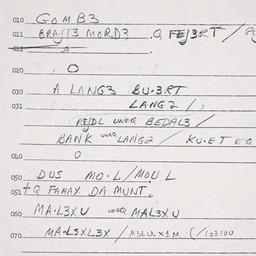 010 GOMB3
011 BRAJT3 MORD3 . Q FEJ3.RT /
012
020 O
030 A LANG3 BU.3.RT
031 LANG2 /
REJDL UNEQ BEDAL3 /
BANK UNEQ LANG2 / KU.ET EQ
040 O
050 DUS MO.L / MOU.L
051 +Q FAMAX DA MUNT
060 MA.L3X.U UNEQ MAL3X.U
070 MA.L3XL3X / M3LU.X1M (/103100